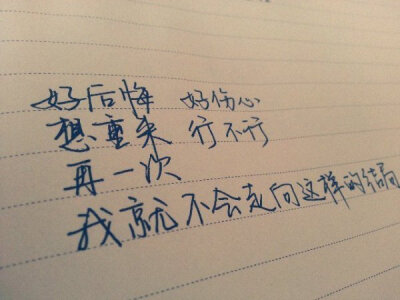 好后悔 好伤心
想重来 行不行
再一次
我就不会走向这样的结局